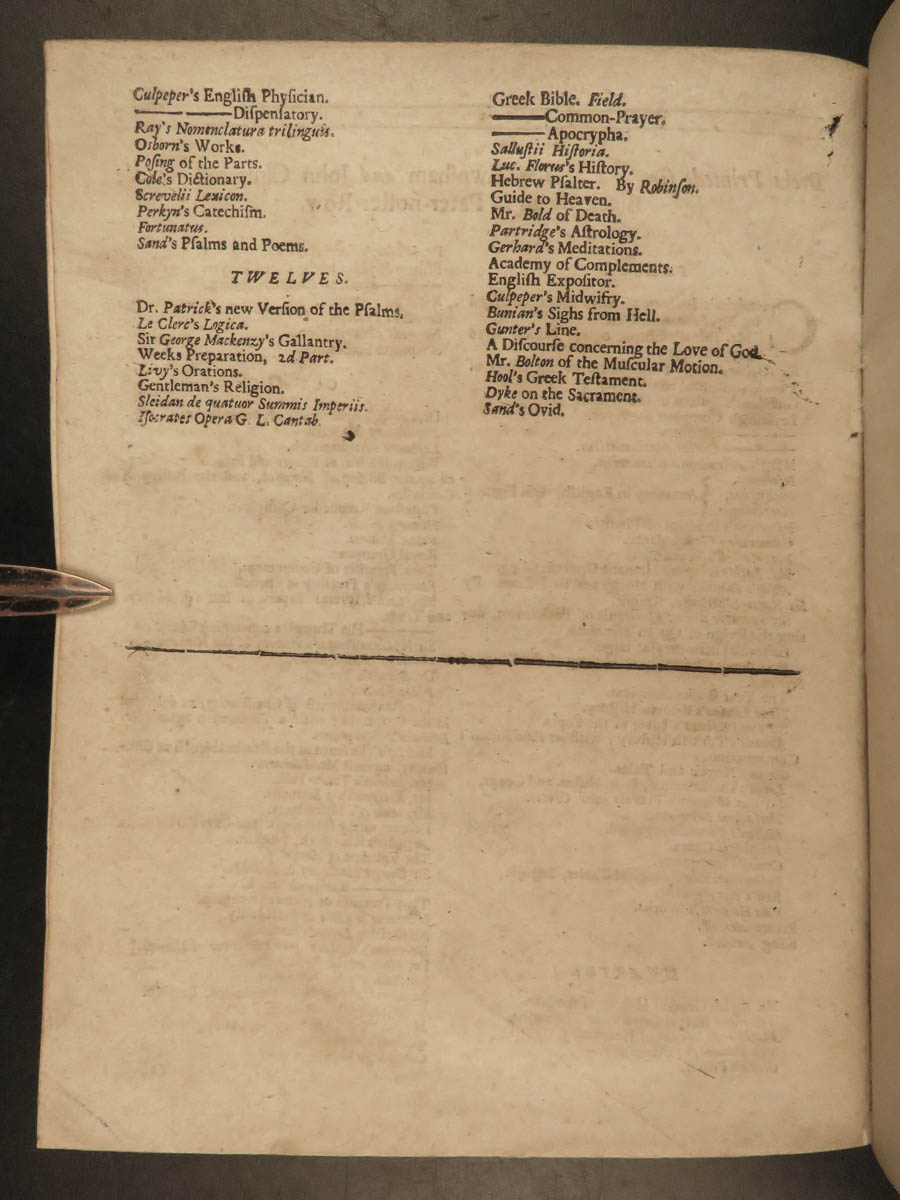 Culpeper's Engliſh Phyſician.
—— —— Diſpenſatory.
Ray's Nomenclatura trilinguis.
Osborn's Works.
Poſing of the Parts.
Cole's Dictionary.
Screvelii Lexicon.
Perkyn's Catechiſm.
Fortunatus.
Sand's Pſalms and Poems.
TWELVES.
Dr. Patrick's new Verſion of the Pſalms.
Le Clerc's Logica.
Sir George Mackenzy's Gallantry.
Weeks Preparation, 2d Part.
Livy's Orations.
Gentleman's Religion.
Sleidan de quatuor Summis Imperiis.
Iſocrates Opera G. L. Cantab.
Greek Bible. Field.
——Common-Prayer.
——Apocrypha.
Salluſtii Hiſtoria.
Luc. Florus's Hiſtory.
Hebrew Pſalter. By Robinſon.
Guide to Heaven.
Mr. Bold of Death.
Partridge's Aſtrology.
Gerhard's Meditations.
Academy of Complements.
Engliſh Expoſitor.
Culpeper's Midwifry.
Bunian's Sighs from Hell.
Gunter's Line.
A Diſcourſe concerning the Love of God.
Mr. Bolton of the Muſcular Motion.
Hool's Greek Teſtament.
Dyke on the Sacrament.
Sand's Ovid.